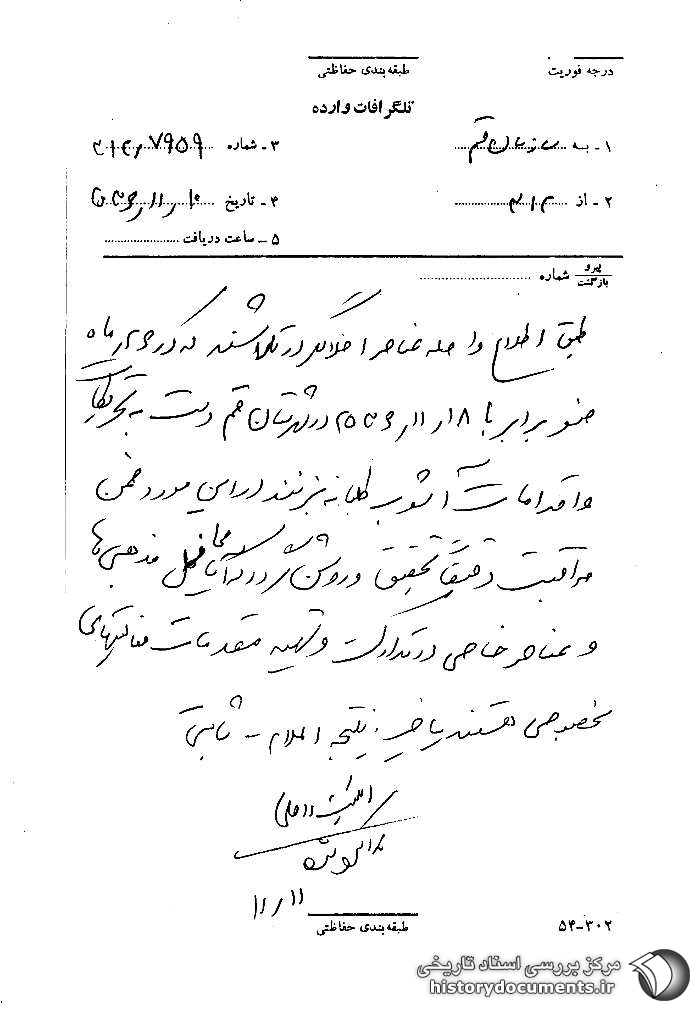 درجه فوریت
طبقه‌بندی حفاظتی
تلگرافات وارده
۱ - به سازمان قم
۳ - شماره ۳۱۲/۷۹۵۹
۲ - از ۳۱۲
۴ - تاریخ ۱۰/۱۱/۲۵۳۶
۵ - ساعت دریافت
پیرو
بازگشت
شماره
طبق اطلاع واصله عناصر اخلالگر در تلاشند که در ۲۹ ماه
صفر برابر با ۱۸/۱۱/۲۵۳۶ در شهرستان قم دست به تحریکات
و اقدامات آشوب طلبانه بزنند در این مورد ضمن
مراقبت دقیقاً تحقیق و روشن شود که آیا محافل مذهبی ها
و عناصر خاصی در تدارک و تهیه مقدمات فعالیتهای
بخصوصی هستند یا خیر. نتیجه اعلام - ثابتی
امنیت داخلی
۱۱/۱۱
طبقه‌بندی حفاظتی
۵۴-۳۰۲
مرکز بررسی اسناد تاریخی
historydocuments.ir